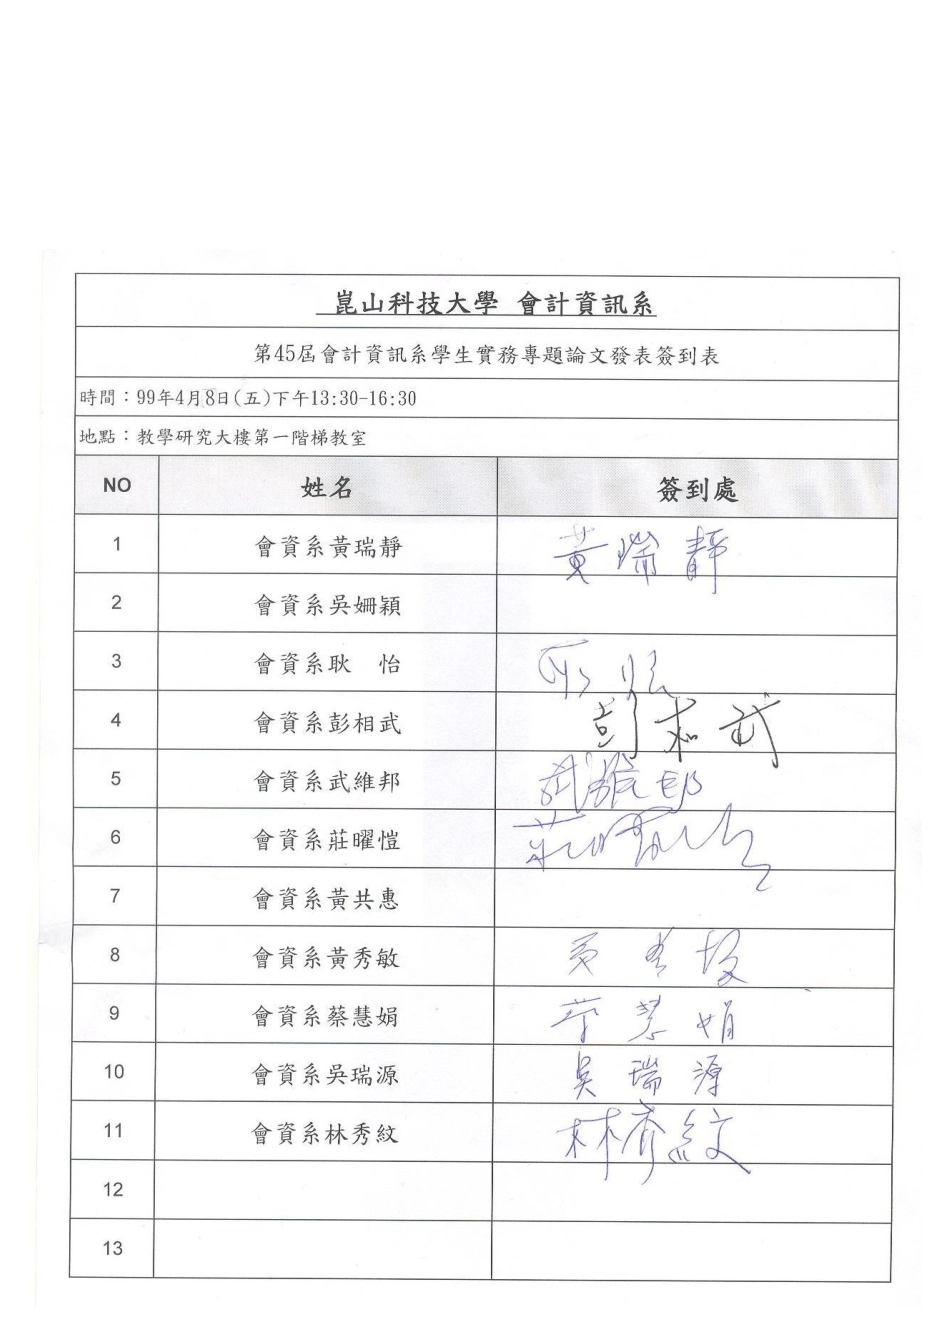 崑山科技大學 會計資訊系
第45屆會計資訊系學生實務專題論文發表簽到表
時間：99年4月8日(五)下午13:30-16:30
地點：教學研究大樓第一階梯教室
NO 姓名 簽到處
1 會資系黃瑞靜 黃瑞靜
2 會資系吳姍穎
3 會資系耿　怡 耿怡
4 會資系彭相武 彭相武
5 會資系武維邦 武維邦
6 會資系莊曜愷 莊曜愷
7 會資系黃共惠
8 會資系黃秀敏 黃秀敏
9 會資系蔡慧娟 蔡慧娟
10 會資系吳瑞源 吳瑞源
11 會資系林秀紋 林秀紋
12
13